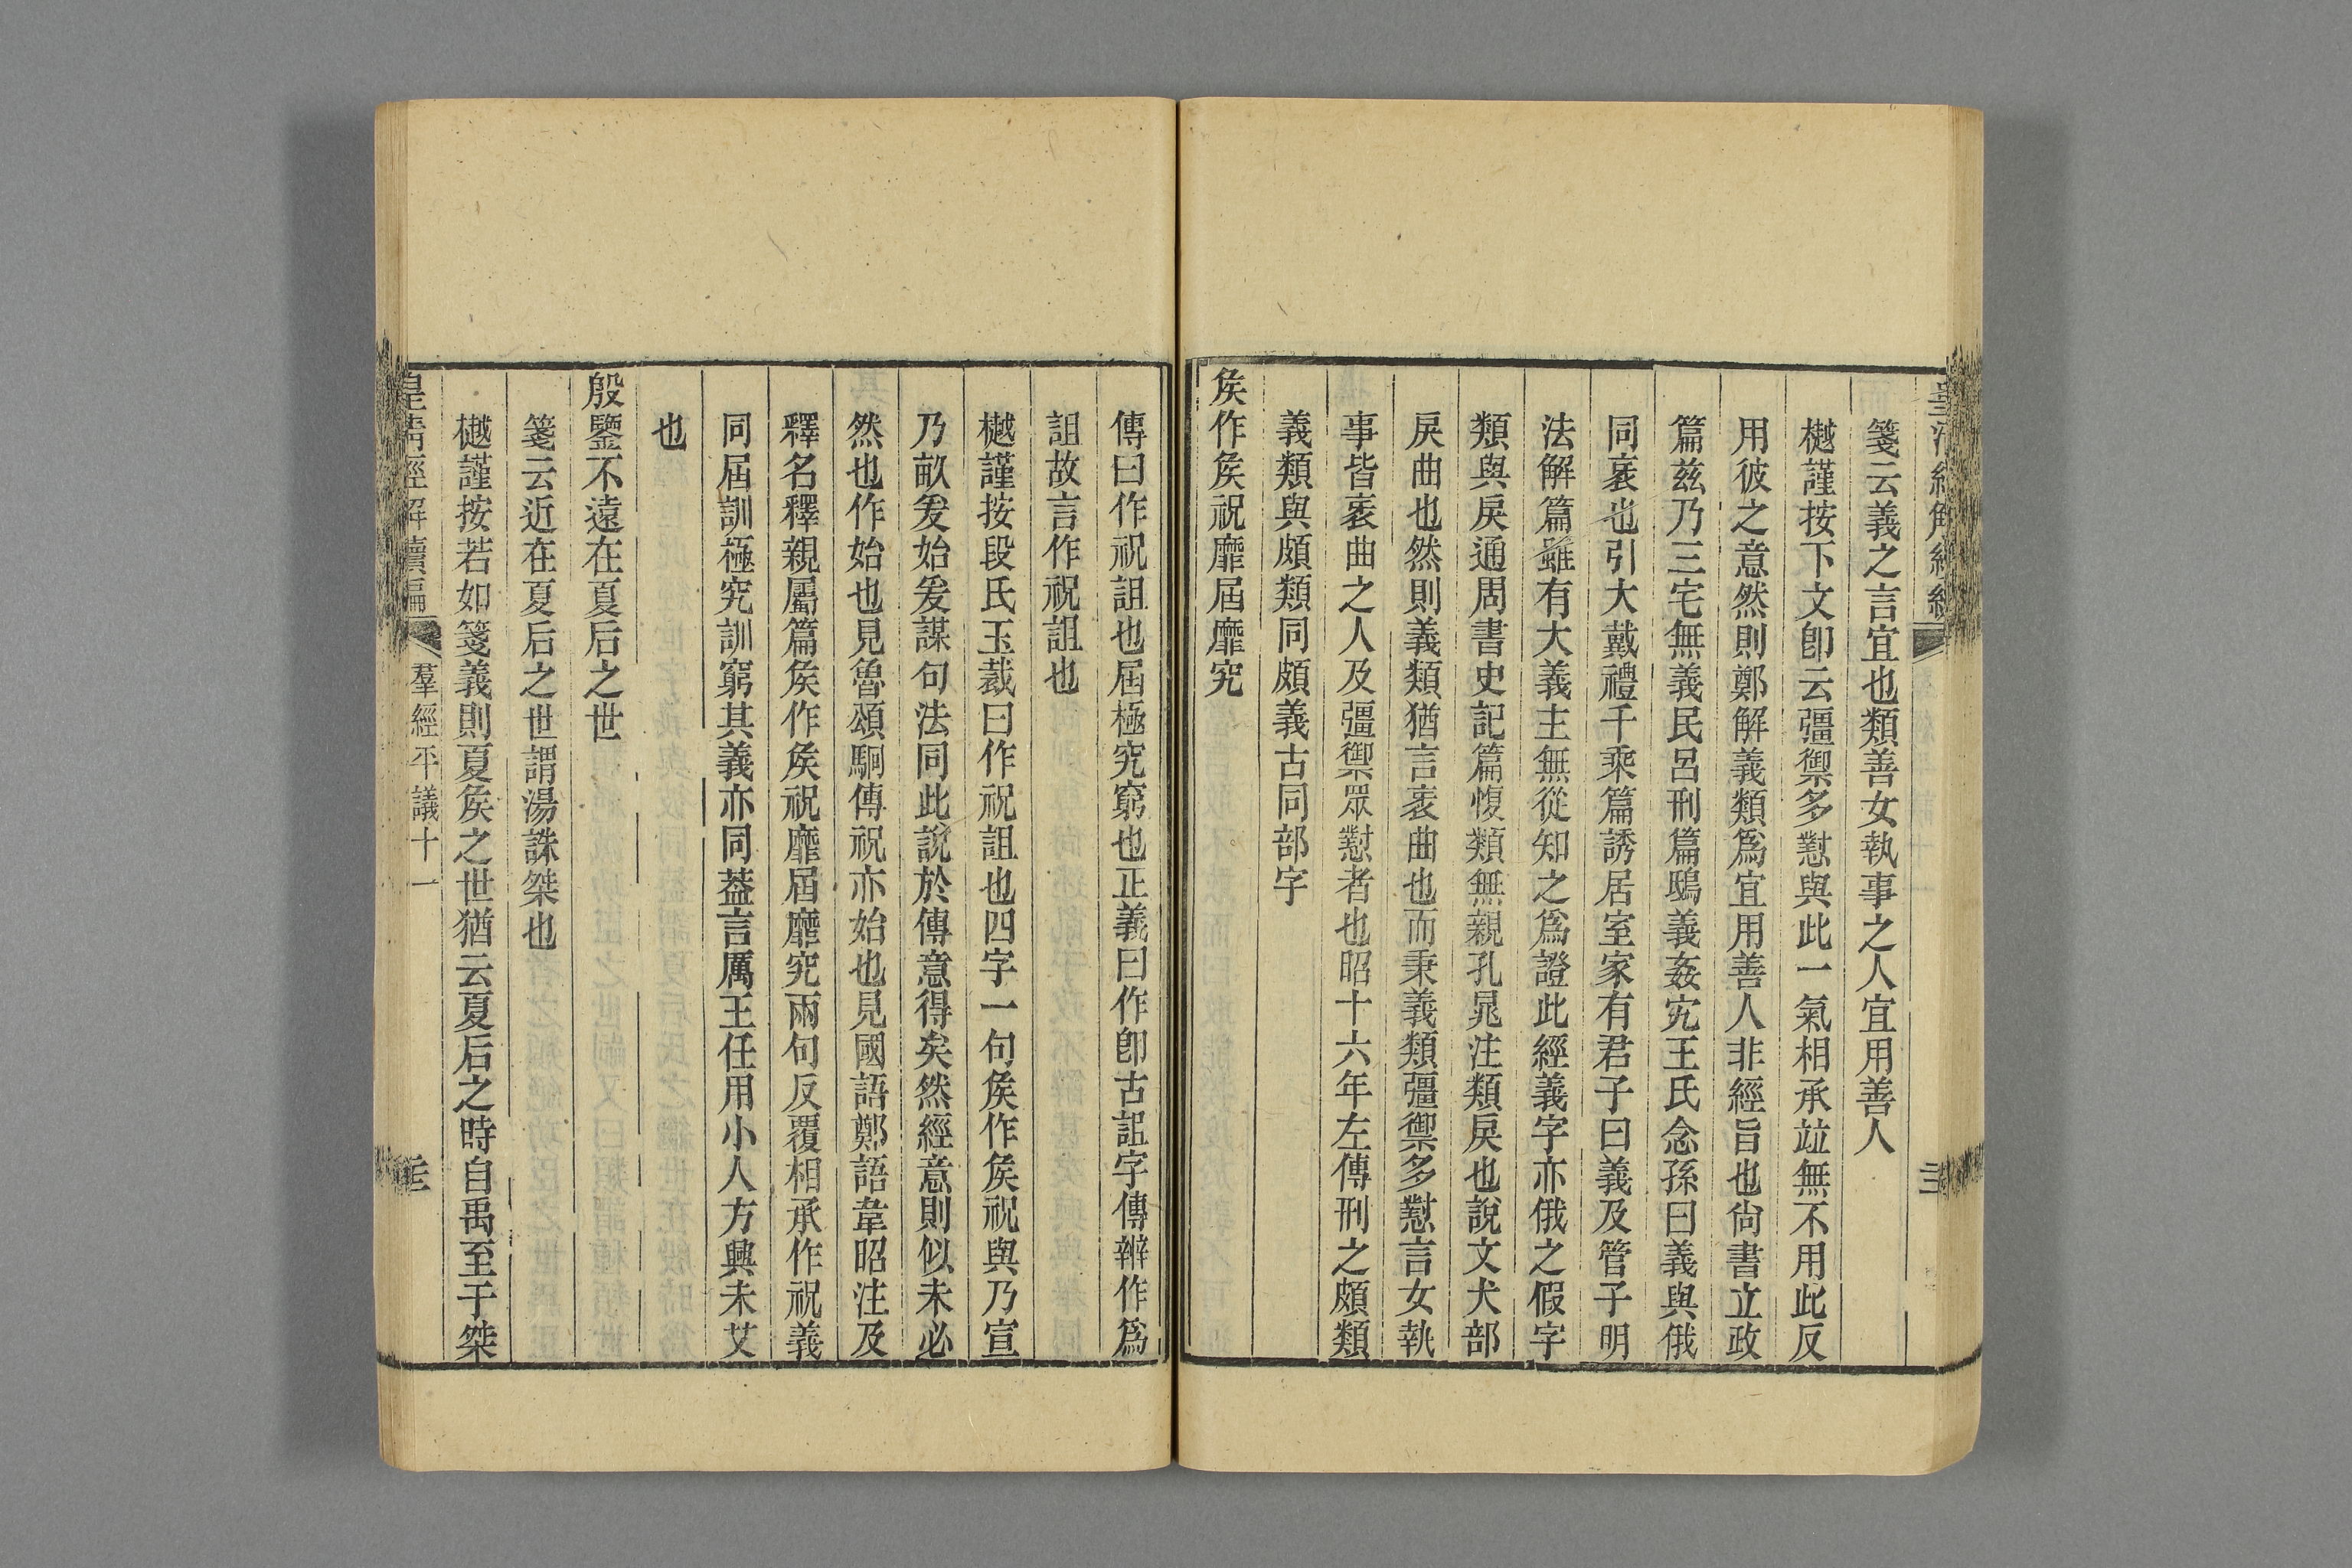 箋云義之言宜也類善女執事之人宜用善人
樾謹按下文卽云彊禦多懟與此一氣相承竝無不用此反
用彼之意然則鄭解義類爲宜用善人非經旨也尙書立政
篇茲乃三宅無義民呂刑篇鴟義姦宄王氏念孫曰義與俄
同衺也引大戴禮千乘篇誘居室家有君子曰義及管子明
法解篇雖有大義主無從知之爲證此經義字亦俄之假字
類與戾通周書史記篇愎類無親孔晁注類戾也說文犬部
戾曲也然則義類猶言衺曲也而秉義類彊禦多懟言女執
事皆衺曲之人及彊禦眾懟者也昭十六年左傳刑之頗類
義類與頗類同頗義古同部字
矦作矦祝靡屆靡究
傳曰作祝詛也屆極究窮也正義曰作卽古詛字傳辨作爲
詛故言作祝詛也
樾謹按段氏玉裁曰作祝詛也四字一句矦作矦祝與乃宣
乃畝爰始爰謀句法同此說於傳意得矣然經意則似未必
然也作始也見魯頌駉傳祝亦始也見國語鄭語韋昭注及
釋名釋親屬篇矦作矦祝靡屆靡究兩句反覆相承作祝義
同屆訓極究訓窮其義亦同葢言厲王任用小人方興未艾
也
殷鑒不遠在夏后之世
箋云近在夏后之世謂湯誅桀也
樾謹按若如箋義則夏矦之世猶云夏后之時自禹至于桀
皇清經解續編
羣經平議十一